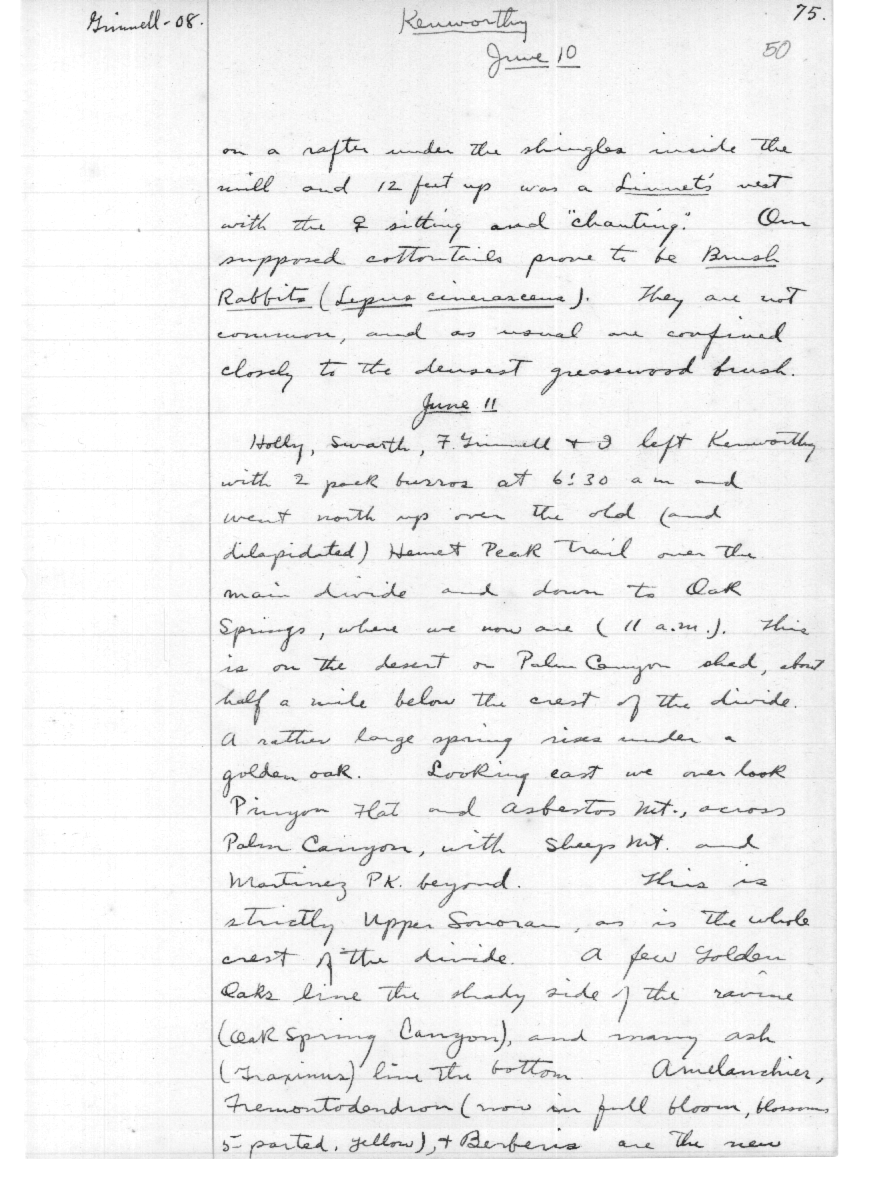 Grinnell-08.
Kenworthy
75.
June 10
50
on a rafter under the shingles inside the
mill and 12 feet up was a Linnet's nest
with the ♀ sitting and "chanting". Our
supposed cottontails prove to be Brush
Rabbits (Lepus cinerascens). They are not
common, and as usual are confined
closely to the densest greasewood brush.
June 11
Holly, Swarth, F. Grinnell + I left Kenworthy
with 2 pack burros at 6:30 a m and
went north up over the old (and
dilapidated) Hemet Peak trail over the
main divide and down to Oak
Springs, where we now are (11 a.m.). This
is on the desert or Palm Canyon shed, about
half a mile below the crest of the divide.
A rather large spring rises under a
golden oak. Looking east we over look
Pinyon Flat and Asbestos Mt., across
Palm Canyon, with Sheep Mt. and
Martinez PK. beyond. This is
strictly Upper Sonoran, as is the whole
crest of the divide. A few Golden
Oaks line the shady side of the ravine
(Oak Spring Canyon), and many ash
(Fraxinus) line the bottom. Amelanchier,
Fremontodendron (now in full bloom, blossoms
5-parted, yellow), + Berberis are the new